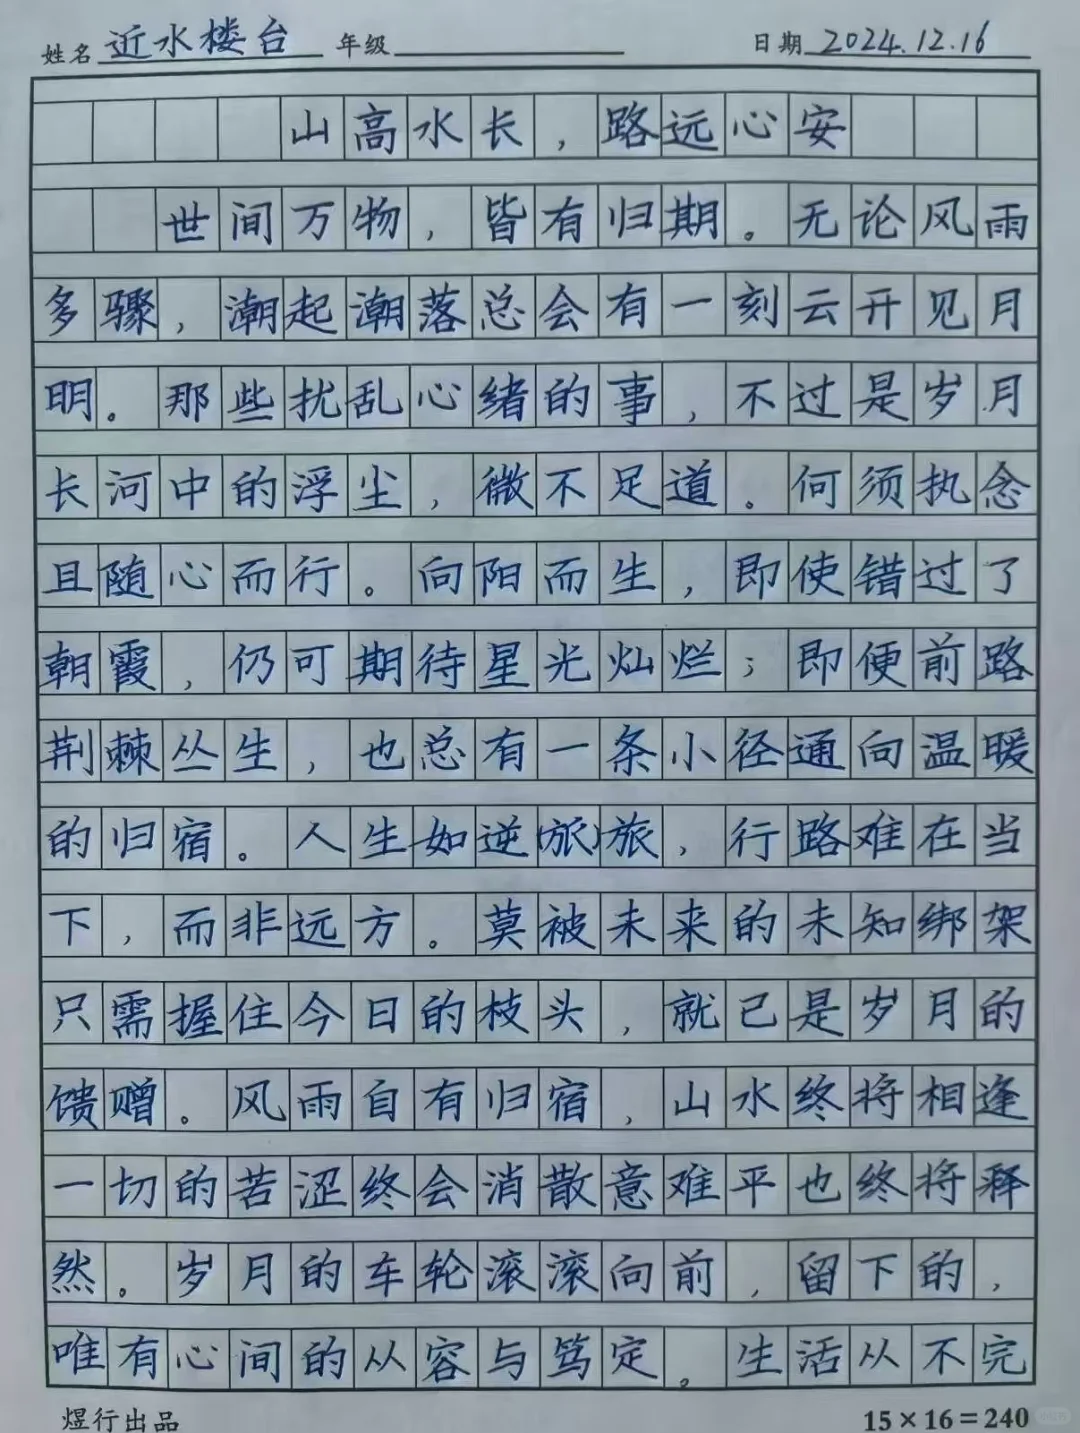 姓名 近水楼台 年级 日期 2024.12.16
山高水长，路远心安
世间万物，皆有归期。无论风雨
多骤，潮起潮落总会有一刻云开见月
明。那些扰乱心绪的事，不过是岁月
长河中的浮尘，微不足道。何须执念
且随心而行。向阳而生，即使错过了
朝霞，仍可期待星光灿烂；即便前路
荆棘丛生，也总有一条小径通向温暖
的归宿。人生如逆(旅)旅，行路难在当
下，而非远方。莫被未来的未知绑架
只需握住今日的枝头，就已是岁月的
馈赠。风雨自有归宿，山水终将相逢
一切的苦涩终会消散意难平也终将释
然。岁月的车轮滚滚向前，留下的，
唯有心间的从容与笃定。生活从不完
煜行出品 15×16=240